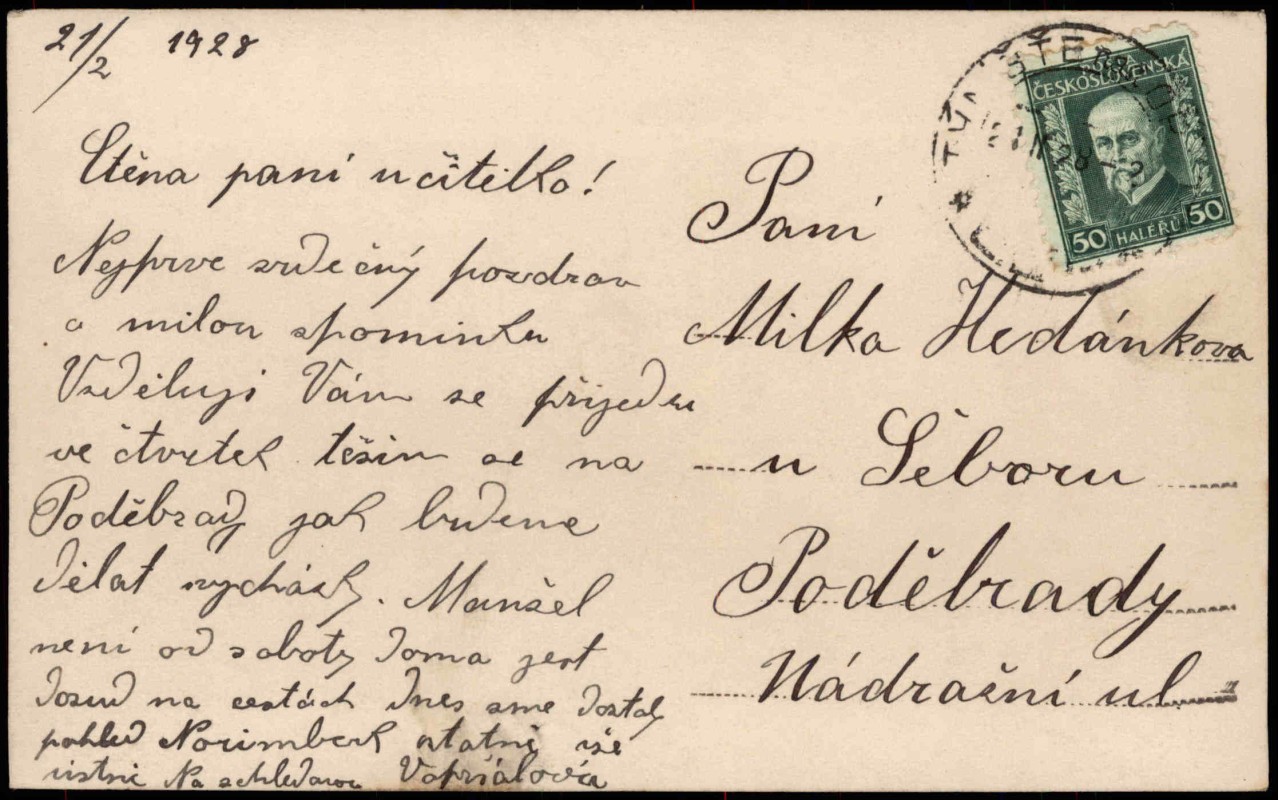 21/2 1928
Ctěna paní učitelko!
Nejprve srdečný pozdrav
a milou spominku
Vzděluji Vám se přijedu
ve čtvrtek těšim se na
Poděbrady jak budeme
dělat vycházky. Manžel
není od soboty doma jest
dosud na cestách Dnes sme dostaly
pohled Norimberk ostatni vše
ustně Na schledanou
ČESKOSLOVENSKÁ
50 HALÉŘŮ 50
Paní
Milka Hedánkova
u Šeboru
Poděbrady
Nádražní ul